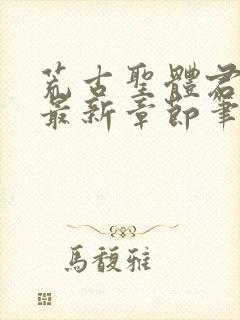 荒古聖體君
最新章節筆
馬馥雅